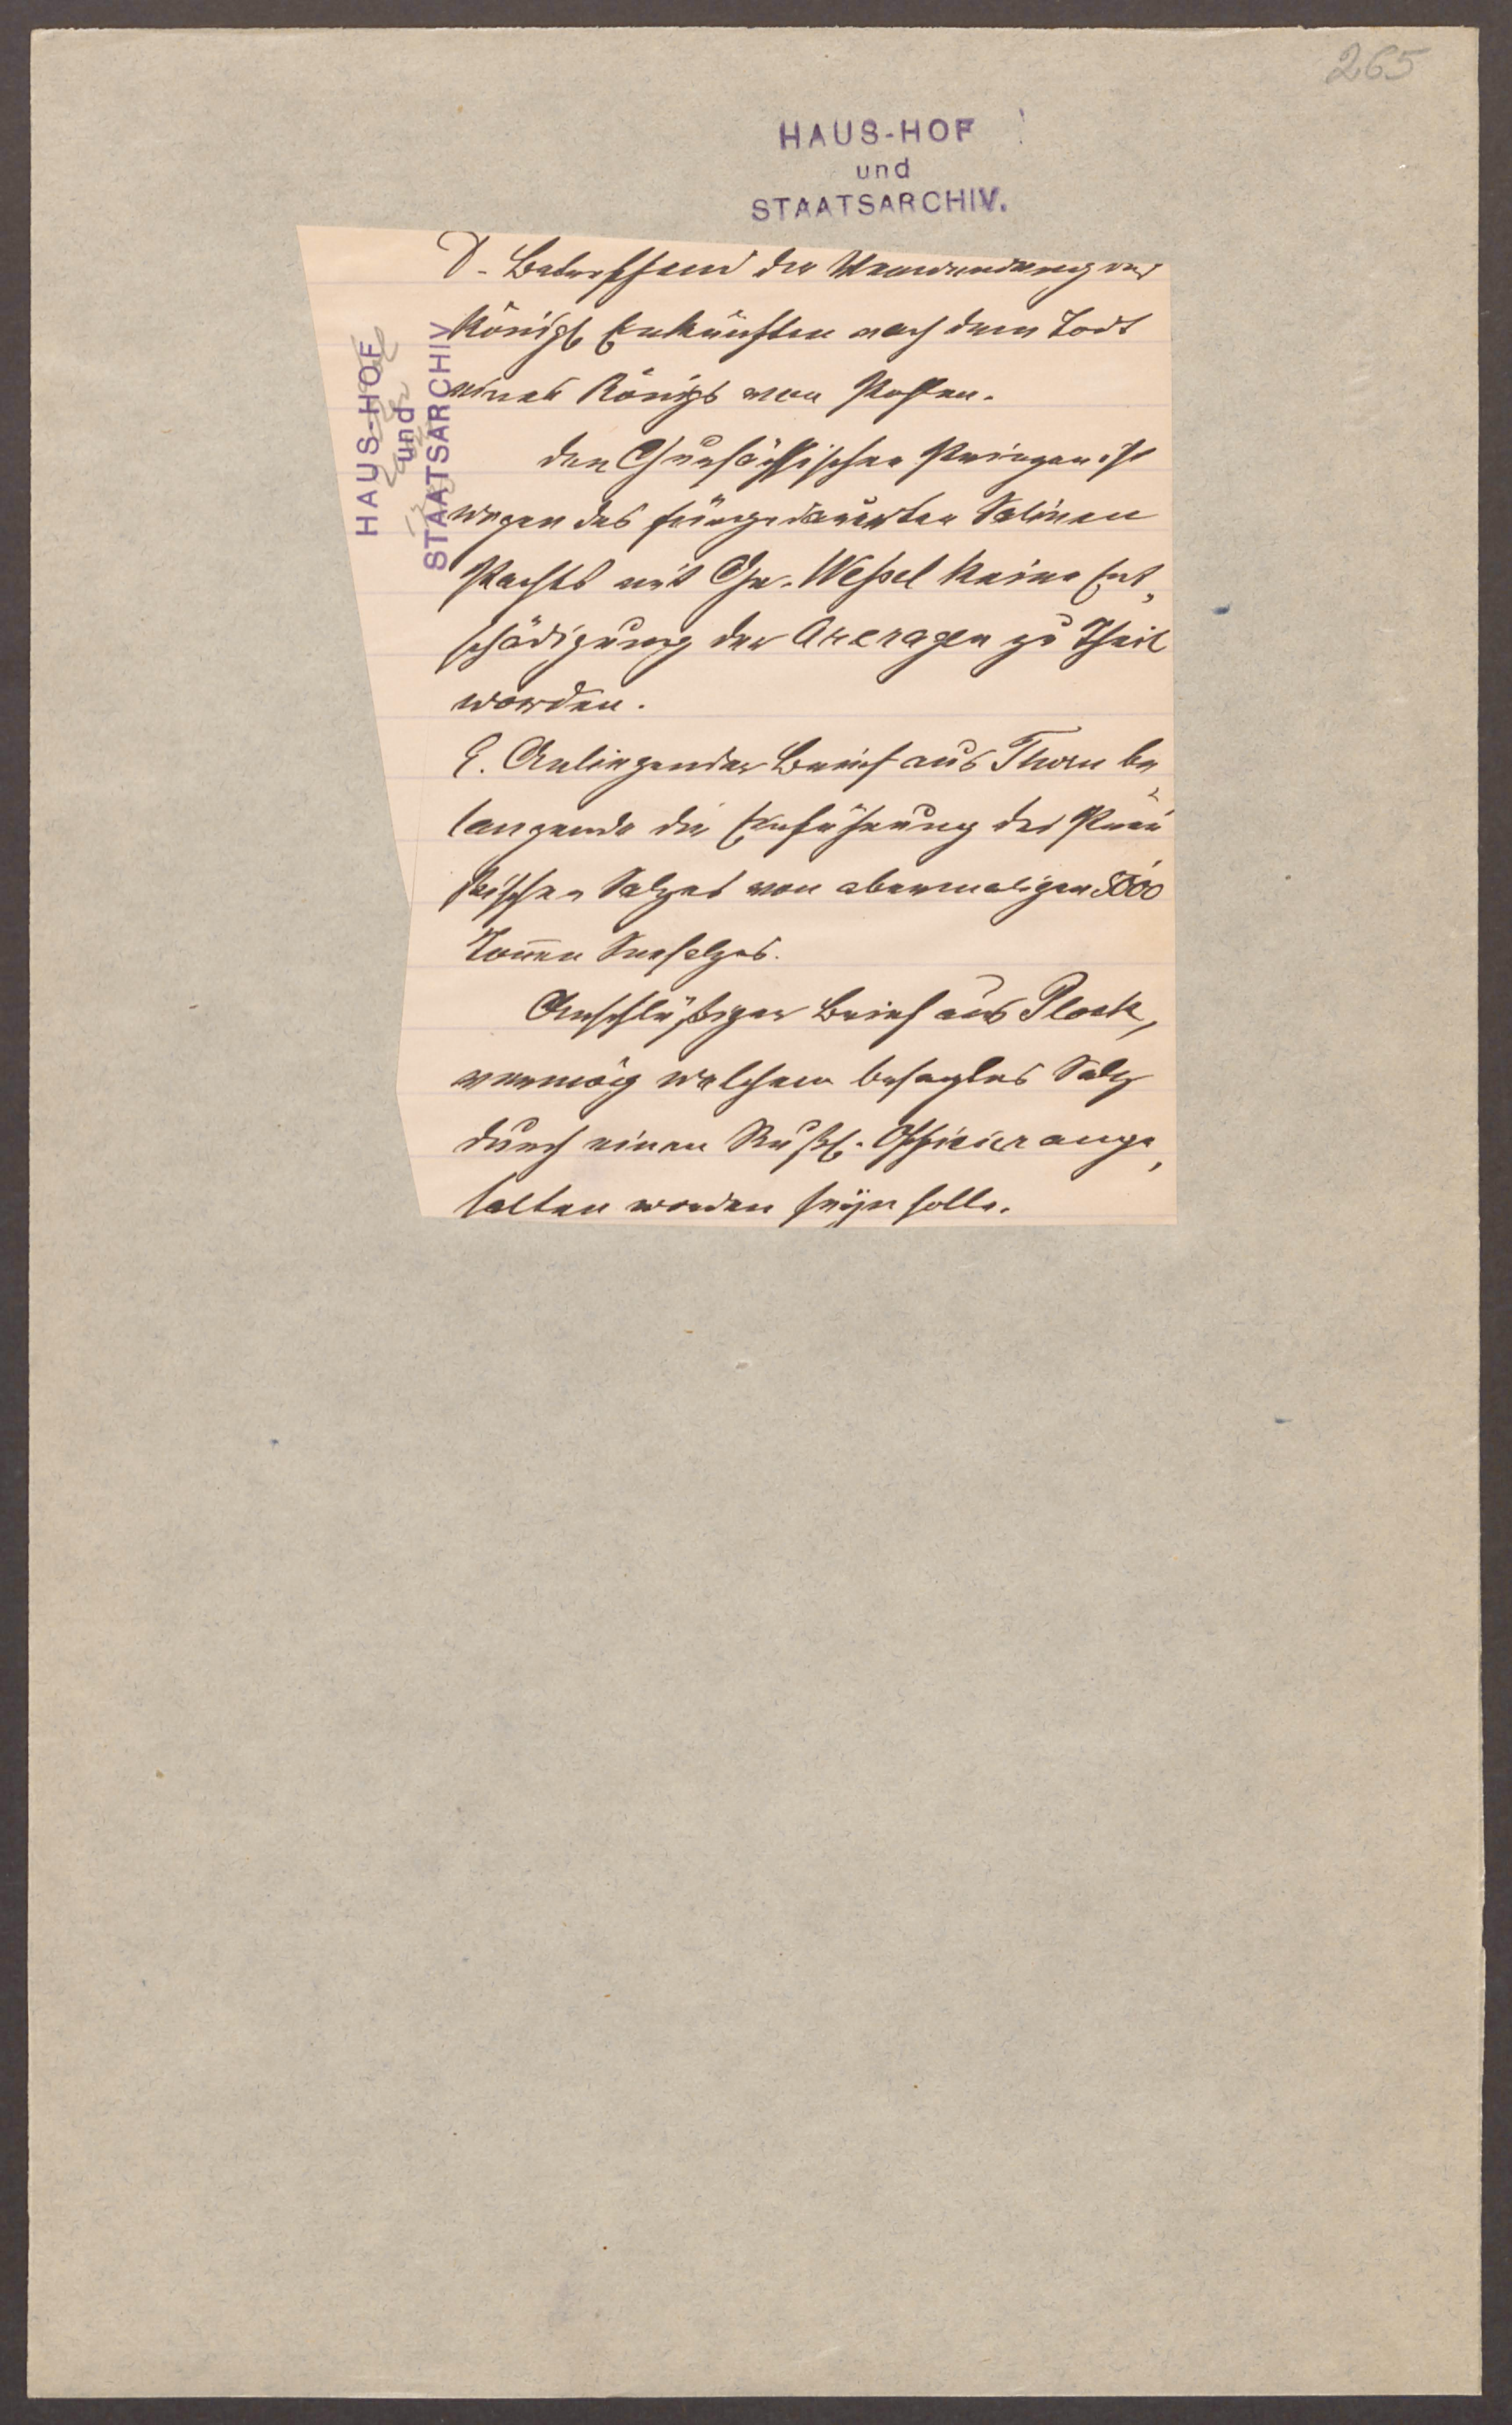 265
HAUS-HOF
und
STAATSARCHIV.
HAUS-HOF
und
STAATSARCHIV
D. Betreffend die Verwendung der
Königl. Einkünften nach dem Todt
eines Königs von Pohlen.
Den Chursächsischen Prinzen ist
wegen des fürgedauerten Salinen
Pachts mit Gr. Weßel keine Ent„
schädigung der Arreragen zu Theil
worden.
E. Anliegender Brief aus Thorn be„
langende die Einführung des Preü
ßischen Salzes von abermaligen 5000
Tonnen Seesalzes.
Anschlüßiger Brief aus Plock,
vermög welchem besagtes Salz
durch einen Rußl. Officier ange„
halten worden seyn solle.